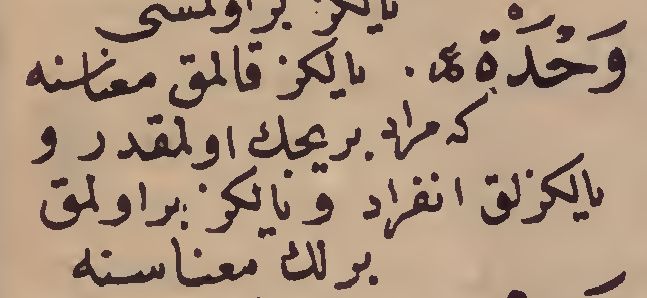 يالكز بر اولمسى
وَحْدَة ع. يالكز قالمق معناسنه
كه مراد بريجك اولمقدر و
يالكزلق انفراد و يالكز بر اولمق
برلك معناسنه